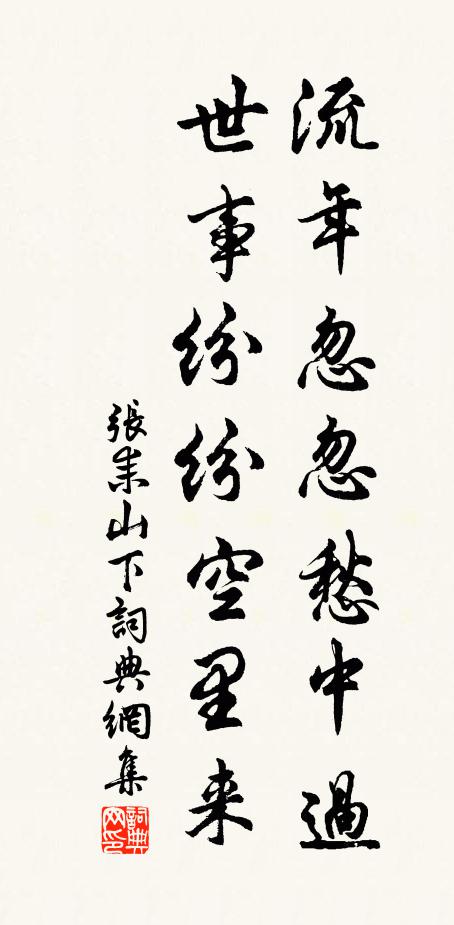 流年忽忽愁中過
世事紛紛空里来
張耒山下詞典網集
詞典网印